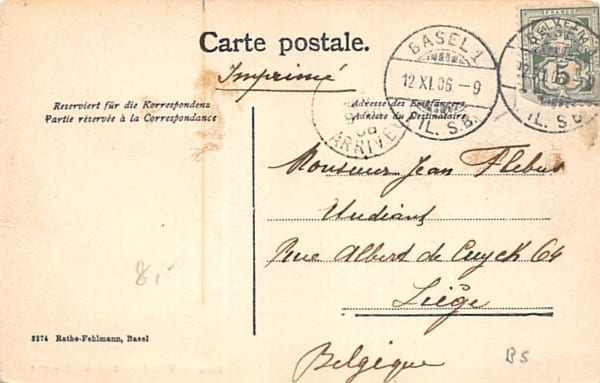 Carte postale.
Imprimé
BASEL 1
12.XI.06 - 9
BR. L. S. B.
HELVETIA
FRANCO
5
12.XI.06 - 9
L. S. B.
ARRIVEE
Reserviert für die Korrespondenz
Partie réservée à la Correspondance
Adresse des Empfängers.
Adresse du Destinataire.
Monsieur Jean Flebus
Rue Albert de Cuyck 64
Liège
Belgique
8,-
BS
3274 Rathe-Fehlmann, Basel